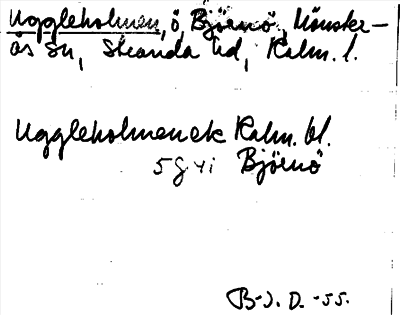 Uggleholmen, ö, Björnö, Mönster-
ås sn, Stranda hd, Kalm. l.
Uggleholmen ek Kalm. bl.
5 g vi Björnö
B-J. D. -55.